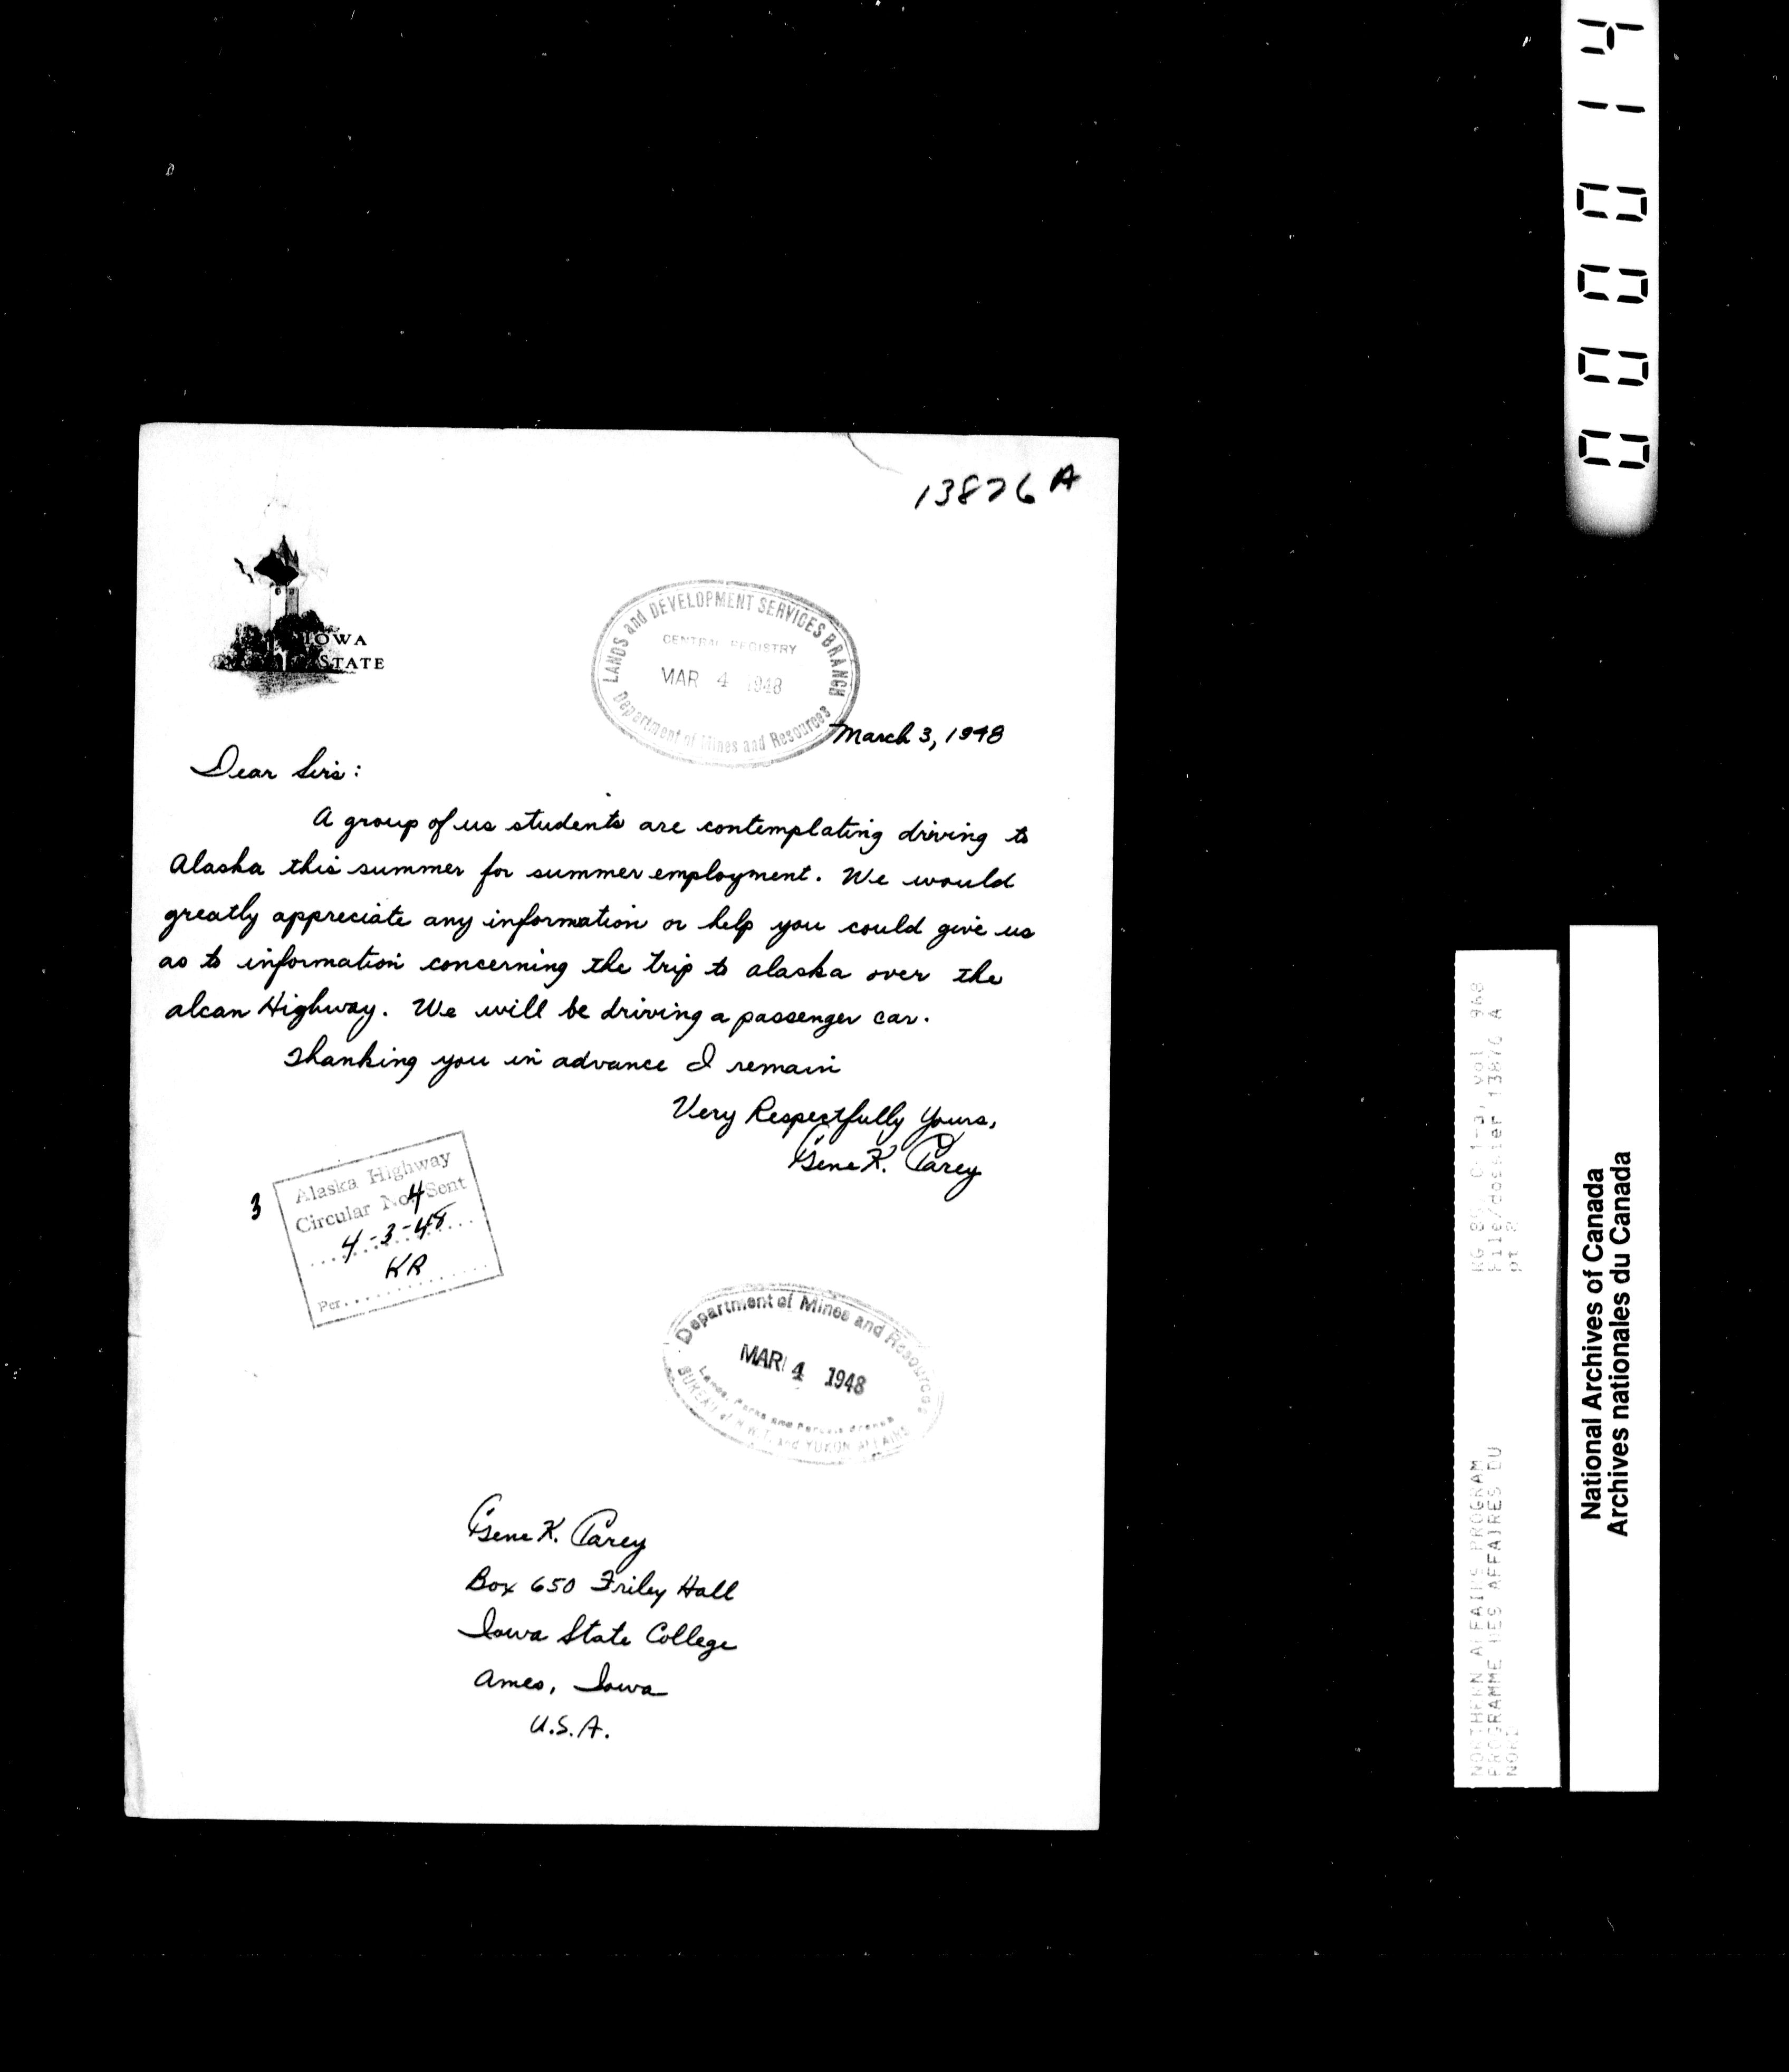 13876 A
IOWA
STATE
LANDS and DEVELOPMENT SERVICES BRANCH
CENTRAL REGISTRY
MAR 4 1948
Department of Mines and Resources
March 3, 1948
Dear Sirs:
A group of us students are contemplating driving to
Alaska this summer for summer employment. We would
greatly appreciate any information or help you could give us
as to information concerning the trip to alaska over the
alcan Highway. We will be driving a passenger car.
Thanking you in advance I remain
Very Respectfully Yours,
Gene K. Carey
3
Alaska Highway
Circular No. 4 Sent
4-3-48
KR
Per.
Department of Mines and Resources
MAR 4 1948
Lands, Parks and Forests Branch
BUREAU of N.W.T. and YUKON AFFAIRS
Gene K. Carey
Box 650 Friley Hall
Iowa State College
Ames, Iowa
U.S.A.
RG 85, C-1-a, vol 968
File/dossier 13876 A
pt
NORTHERN AFFAIRS PROGRAM
PROGRAMME DES AFFAIRES DU
NORD
National Archives of Canada
Archives nationales du Canada